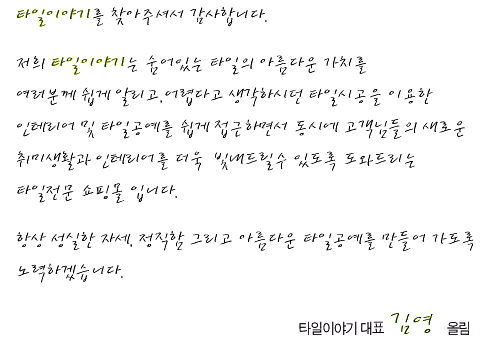 타일이야기를 찾아주셔서 감사합니다.
저희 타일이야기는 숨어있는 타일의 아름다운 가치를
여러분께 쉽게 알리고, 어렵다고 생각하시던 타일시공을 이용한
인테리어 및 타일공예를 쉽게 접근하면서 동시에 고객님들의 새로운
취미생활과 인테리어를 더욱 빛내드릴수 있도록 도와드리는
타일전문 쇼핑몰 입니다.
항상 성실한 자세, 정직함 그리고 아름다운 타일공예를 만들어 가도록
노력하겠습니다.
타일이야기 대표 김영 올림